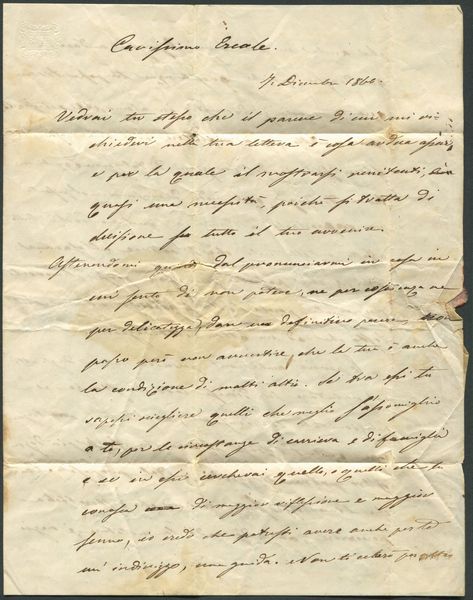 Carissimo Ercole.
7. Dicembre 1866.
Vedrai tu stesso che il parere di cui mi ri-
chiedevi nella tua lettera è cosa ardua assai,
e per la quale il mostrarsi renitenti, è
quasi una necessità, poichè si tratta di
decisione su tutto il tuo avvenire.
Astenendomi quindi dal pronunciarmi in cosa in
cui sento di non potere, ne per coscienza ne
per delicatezza, dare un definitivo parere, non
posso però non avvertire, che la tua è anche
la condizione di molti altri. Se tra essi tu
sapessi scegliere quelli che meglio s'assomigliano
a te, per le circostanze di carriera e di famiglia
e se in essi cercherai quello, o quelli che tu
conosca di maggior riflessione e maggior
senno, io credo che potresti avere anche per te
un indirizzo, una guida. Non ti celerò per